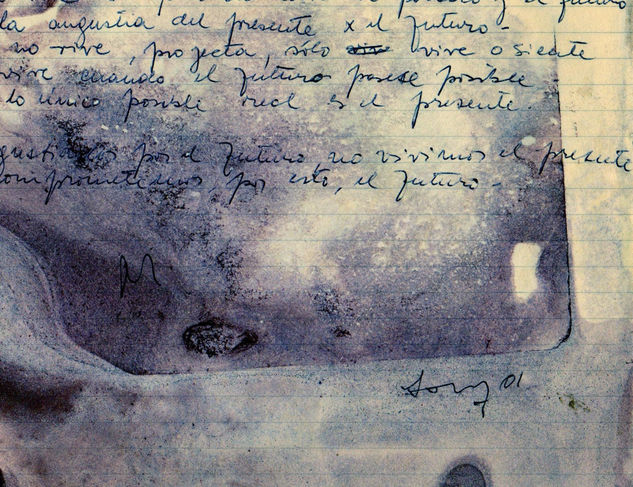 el futuro
la angustia del presente x el futuro.
no vive, projecta, sólo vive o siente
vive cuando el futuro parece posible
lo unico posible real es el presente.
por el futuro, no vivimos el presente
comprometemos, por esto, el futuro.
01